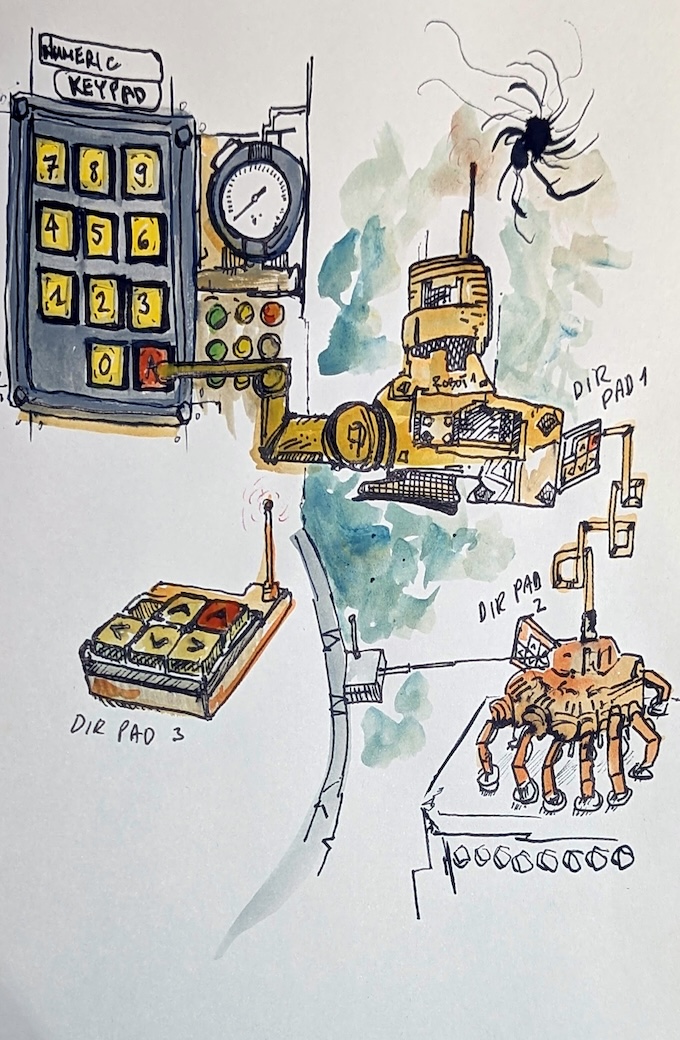 NUMERIC
KEYPAD
7 8 9
4 5 6
1 2 3
0 A
ROBOT 1
DIR
PAD 1
DIR PAD
2
A
DIR PAD 3